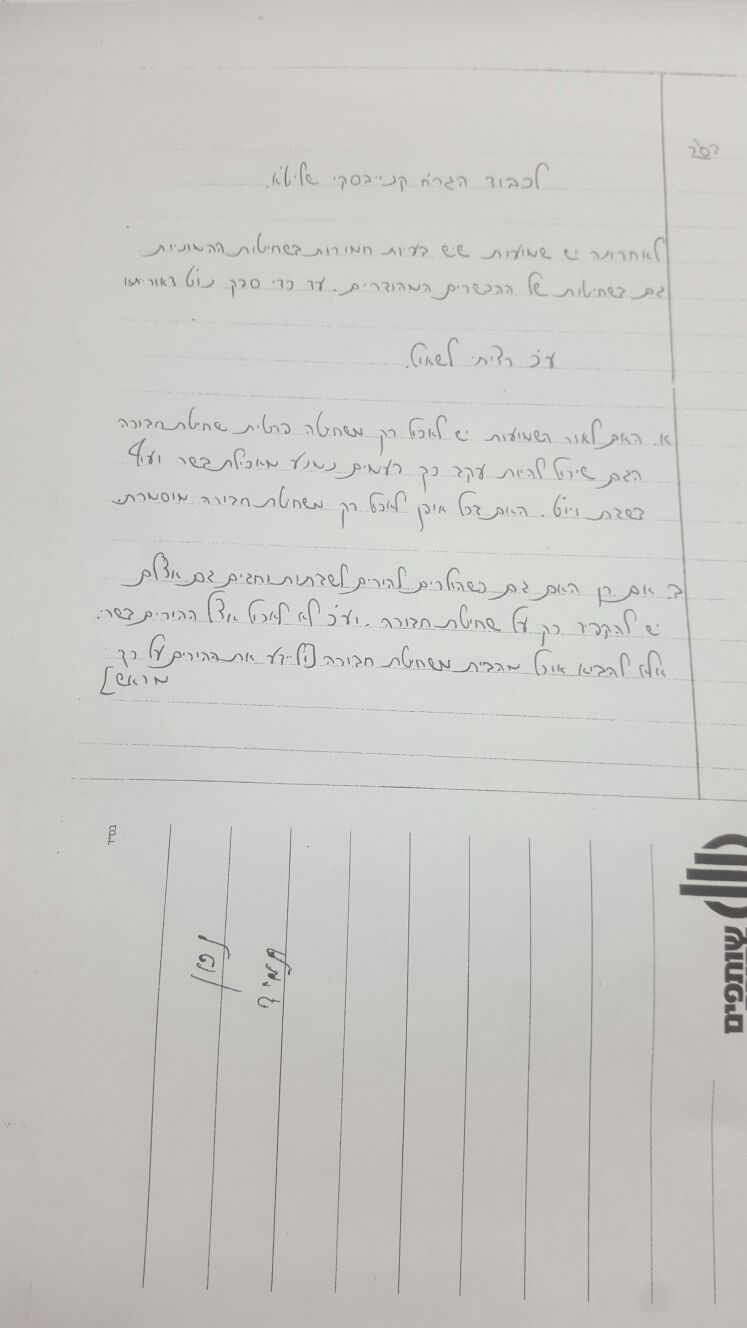 בס"ד
לכבוד הגר"ח קנייבסקי שליט"א.
לאחרונה יש שמועות שיש בעיות חמורות בשחיטות ההמוניות
גם בשחיטות של ההכשרים המהודרים. עד כדי ספק נו"ט דאורייתא
ע"כ רציתי לשאול.
א. האם לאור השמועות יש לאכול רק משחיטה פרטית שחיטת חבורה
הגם שיכול להיות עקב כך לעמים נמנע מאכילת בשר ועוף
בשבת ויו"ט. האם בכל אופן לאכול רק משחיטת חבורה מוסמכת.
ב. אם כן האם גם כשהולכים להורים לשבתות וחגים גם אצלם
יש להקפיד רק על שחיטת חבורה. וע"כ לא לאכול אצל ההורים בשר.
אלא להביא אוכל מהבית משחיטת חבורה [וליידע את ההורים על כך
מראש]
בס"ד
שותפים